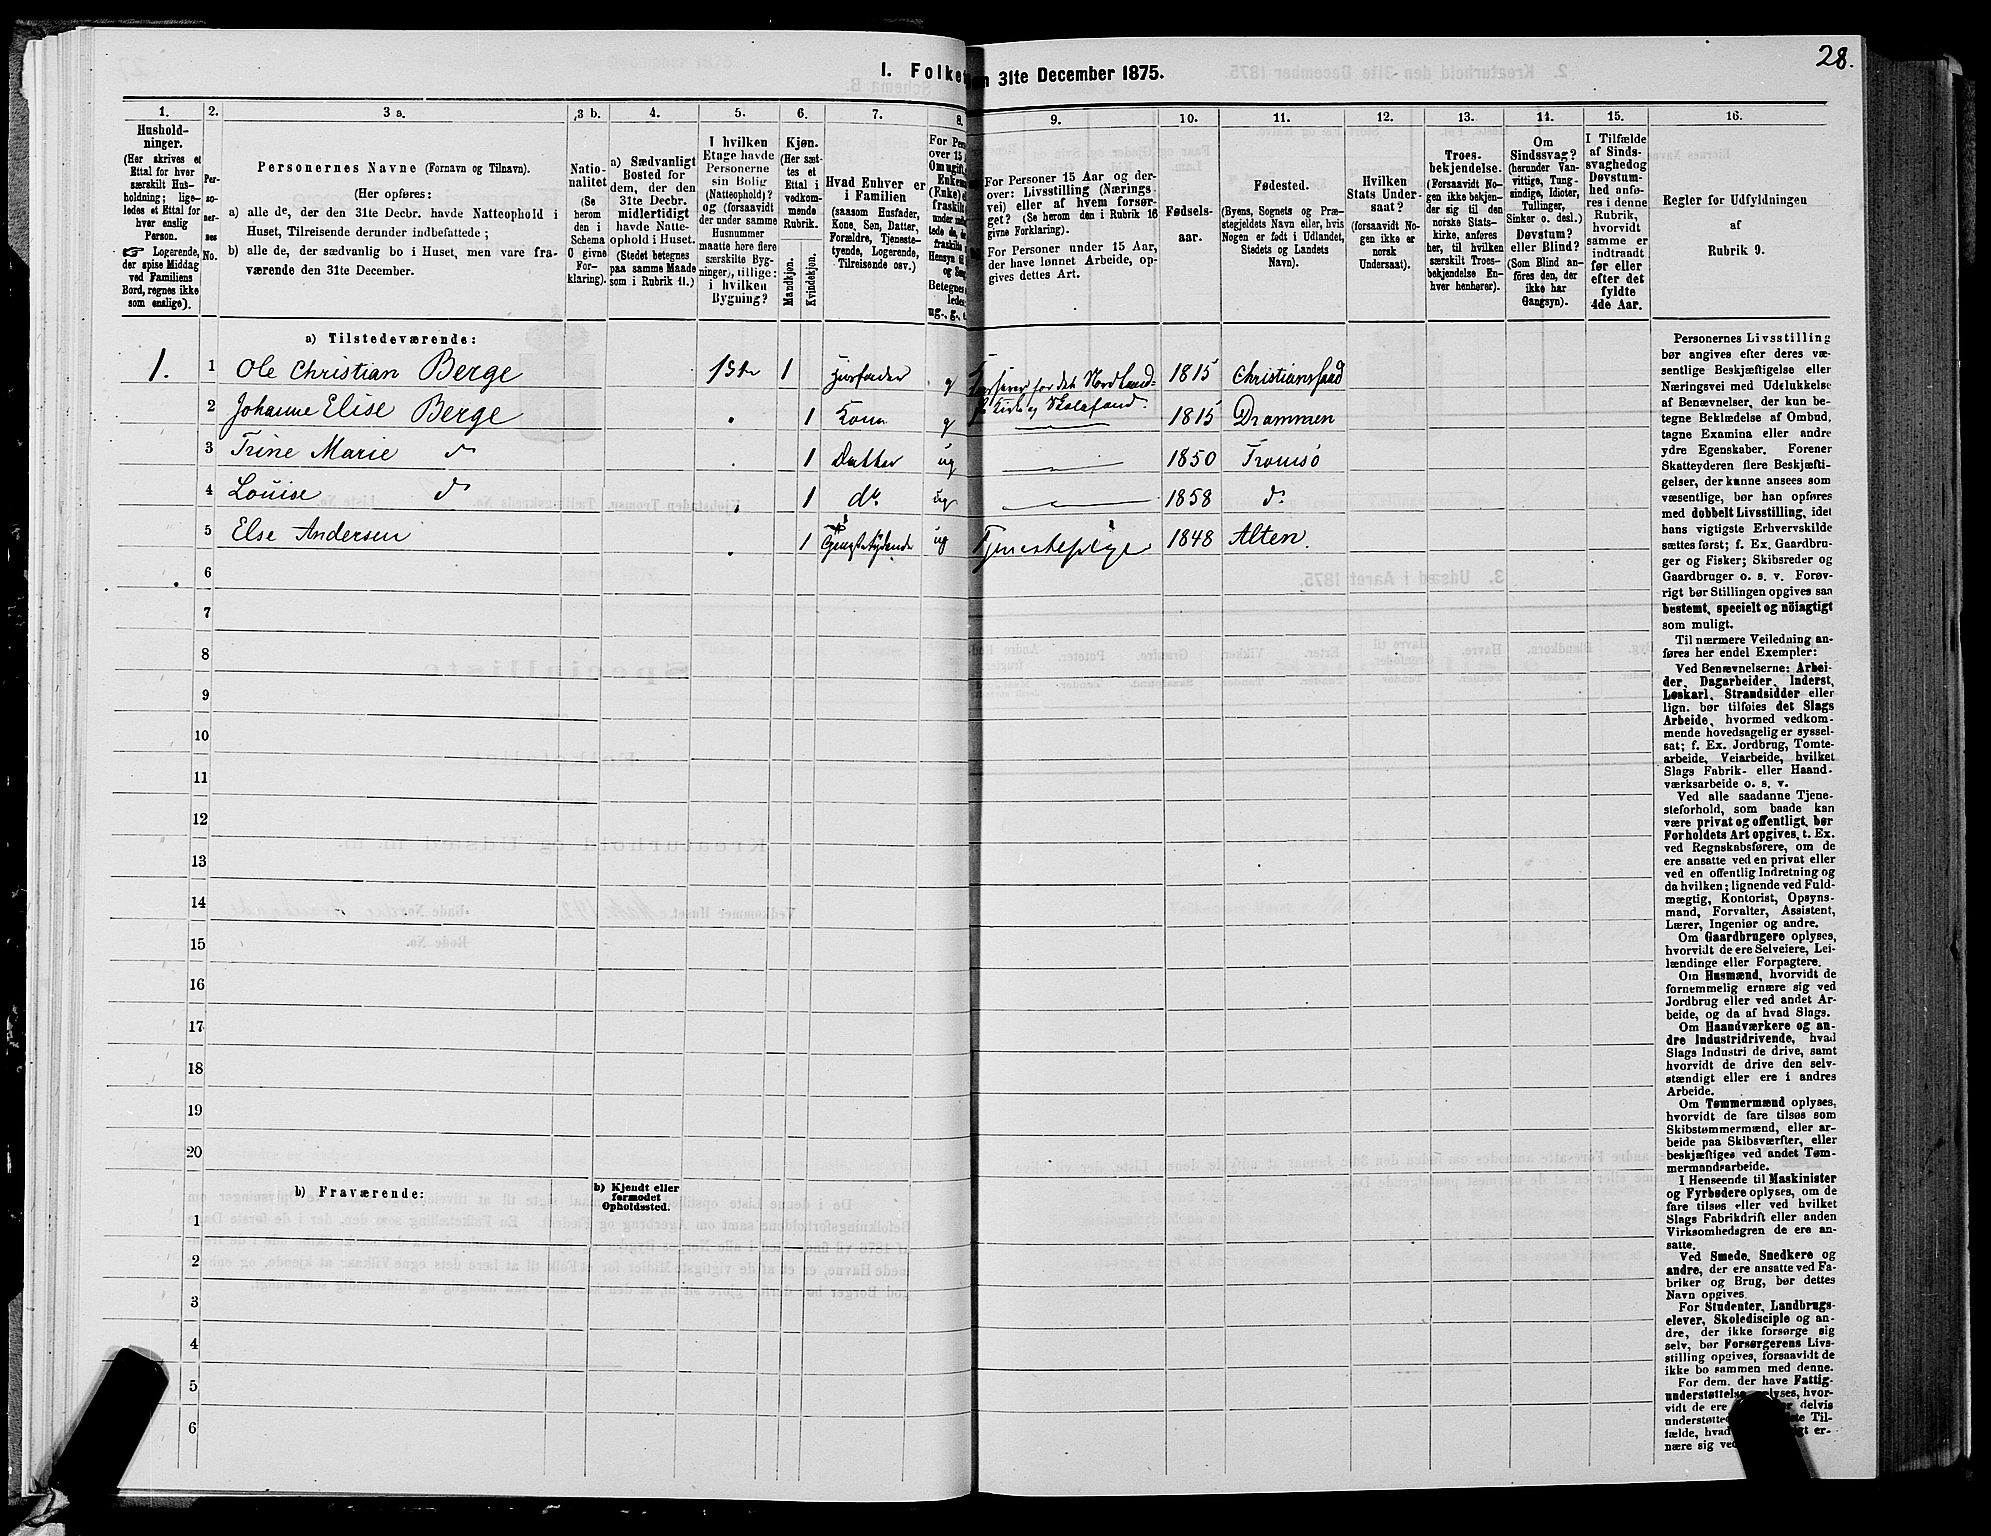 28.
I. Folket
en 31te December 1875.
1.
Hushold-
ninger.
(Her skrives et
Ettal for hver
særskilt Hus-
holdning; lige-
ledes et Ettal for
hver enslig
Person.
☞ Logerende,
der spise Middag
ved Familiens
Bord, regnes ikke
som enslige).
2.
Per-
so-
ner-
nes
No.
3 a.
Personernes Navne (Fornavn og Tilnavn).
(Her opføres:
a) alle de, der den 31te Decbr. havde Natteophold i
Huset, Tilreisende derunder indbefattede;
b) alle de, der sædvanlig bo i Huset, men vare fra-
værende den 31te December.
3 b.
Natio-
nalitet
(Se
herom
den i
Schema
0 givne
For-
klaring).
4.
a) Sædvanligt
Bosted for
dem, der den
31te Decbr.
midlertidigt
havde Natte-
ophold i Huset.
(Stedet betegnes
paa samme Maade
som i Rubrik 11.)
5.
I hvilken
Etage havde
Personerne
sin Bolig
(Natteophold)?
og (forsaavidt
der under samme
Husnummer
maatte høre flere
særskilte Byg-
ninger), tillige:
i hvilken
Bygning?
6.
Kjøn.
(Her sæt-
tes et
Ettal i
vedkom-
mende
Rubrik.
Mandkjøn.
Kvindekjøn.
7.
Hvad Enhver er
i Familien
(saasom Husfader,
Kone, Søn, Datter,
Forældre, Tjeneste-
tyende, Logerende,
Tilreisende osv.)
8.
For Per
over 15
Om ugift,
Enkem
(Enke) e
fraskilt
9.
For Personer 15 Aar og der-
over: Livsstilling (Nærings-
vei) eller af hvem forsør-
get? (Se herom den i Rubrik 16
givne Forklaring).
For Personer under 15 Aar,
der have lønnet Arbeide, op-
gives dettes Art.
10.
Fødsels-
aar.
11.
Fødested.
(Byens, Sognets og Præ-
stegjeldets Navn eller, hvis
Nogen er født i Udlandet,
Stedets og Landets
Navn).
12.
Hvilken
Stats Under-
saat?
(forsaavidt No-
gen ikke er
norsk
Undersaat).
13.
Troes-
bekjendelse.
(Forsaavidt No-
gen ikke bekjen-
der sig til den
norske Stats-
kirke, anføres
her, til hvilken
særskilt Troes-
bekjendelse En-
hver henhører).
14.
Om
Sindssvag?
(herunder Van-
vittige, Tung-
sindige, Idioter,
Tullinger,
Sinker o. desl.)
Døvstum?
eller Blind?
(Som Blind an-
føres den, der
ikke har
Gangsyn).
15.
I Tilfælde
af Sinds-
svaghed og
Døvstum-
hed anfø-
res i denne
Rubrik,
hvorvidt
samme er
indtraadt
før eller
efter det
fyldte
4de Aar.
16.
Regler for Udfyldningen
af
Rubrik 9.
a) Tilstedeværende:
1. 1 Ole Christian Berge 1 Ste 1 Husfader g for det Nordland= 1815 Christianssand
& Skolefond.
2 Johanne Elise Berge 1 Kone g 1815 Drammen
3 Trine Marie d 1 Datter ug 1850 Tromsø
4 Louise d 1 do ug 1858 do
5 Else Andersen 1 ug Tjenestepige 1848 Alten.
6
7
8
9
10
11
12
13
14
15
16
17
18
19
20
b) Fraværende:
b) Kjendt eller
formodet
Opholdssted.
1
2
3
4
5
6
Personernes Livsstilling
bør angives efter deres væ-
sentlige Beskjæftigelse eller
Næringsvei med Udelukkelse
af Benævnelser, der kun be-
tegne Beklædelse af Ombud,
tagne Examina eller andre
ydre Egenskaber. Forener
Skatteyderen flere Beskjæfti-
gelser, der kunne ansees som
væsentlige, bør han opføres
med dobbelt Livsstilling, idet
hans vigtigste Erhvervskilde
sættes først; f. Ex. Gaardbru-
ger og Fisker; Skibsreder og
Gaardbruger o. s. v. Forøv-
rigt bør Stillingen opgives saa
bestemt, specielt og nöiagtigt
som muligt.
Til nærmere Veiledning an-
føres her endel Exempler:
Ved Benævnelserne: Arbei-
der, Dagarbeider, Inderst,
Løskarl, Strandsidder eller
lign. bør tilføies det Slags
Arbeide, hvormed vedkom-
mende hovedsagelig er syssel-
sat; f. Ex. Jordbrug, Tomte-
arbeide, Veiarbeide, hvilket
Slags Fabrik- eller Haand-
værksarbeide o. s. v.
Ved alle saadanne Tjene-
steforhold, som baade kan
være privat og offentligt, bør
Forholdets Art opgives, t. Ex.
ved Regnskabsførere, om de
ere ansatte ved en privat eller
ved en offentlig Indretning og
da hvilken; lignende ved Fuld-
mægtig, Kontorist, Opsyns-
mand, Forvalter, Assistent,
Lærer, Ingeniør og andre.
Om Gaardbrugere oplyses,
hvorvidt de ere Selveiere, Lei-
lændinge eller Forpagtere.
Om Husmænd, hvorvidt de
fornemmelig ernære sig ved
Jordbrug eller ved andet Ar-
beide, og da af hvad Slags.
Om Haandværkere og an-
dre Industridrivende, hvad
Slags Industri de drive, samt
hvorvidt de drive den selv-
stændigt eller ere i andres
Arbeide.
Om Tømmermænd oplyses,
hvorvidt de fare tilsøs som
Skibstømmermænd, eller ar-
beide paa Skibsværfter, eller
beskjæftiges ved andet Tøm-
mermandsarbeide.
I Henseende til Maskinister
og Fyrbødere oplyses, om de
fare tilsøs eller ved hvilket
Slags Fabrikdrift eller anden
Virksomhedsgren de ere an-
satte.
Ved Smede, Snedkere og
andre, der ere ansatte ved Fa-
briker og Brug, bør dettes
Navn opgives.
For Studenter, Landbrugs-
elever, Skoledisciple og an-
dre, der ikke forsørge sig
selv, bør Forsørgerens Livs-
stilling opgives, forsaavidt de
ikke bo sammen med denne.
For dem, der have Fattig-
understøttelse, oplyses, hvor-
vidt de ere delvis
understøtte Til-
fælde, hvad er-
nære sig ved